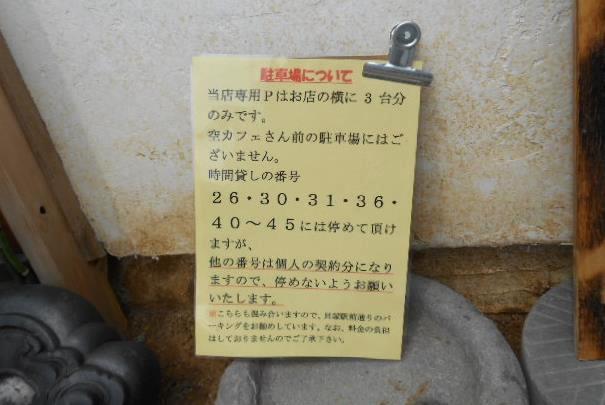 駐車場について
当店専用Pはお店の横に3台分
のみです。
空カフェさん前の駐車場にはご
ざいません。
時間貸しの番号
26・30・31・36・
40～45には停めて頂け
ますが、
他の番号は個人の契約分になり
ますので、停めないようお願い
いたします。
※こちらも混み合いますので、貝塚駅前通りのパ
ーキングをお勧めしています。なお、料金の負担
はしておりませんのでご了承下さい。